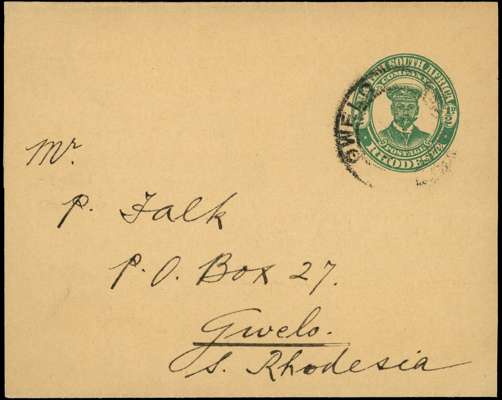 BRITISH SOUTH AFRICA
COMPANY
½
POSTAGE
RHODESIA
GWELO
Mr.
P. Falk
P. O. Box 27.
Gwelo.
S. Rhodesia